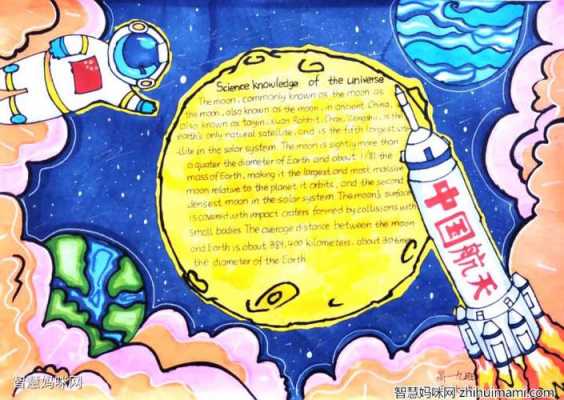 Science knowledge of the universe
The moon, commonly known as the moon as
the moon, also known as the moon, in ancient China,
also known as Taiyin, Xuan Rabbit, Chan, Zengshu, is the
earth's only natural satellite, and is the fifth largest
-llite in the solar system. The moon is slightly more than
a quater the diameter of Earth and about 1/81 the
mass of Earth, making it the largest and most massive
moon relative to the planet it orbits, and the second
densest moon in the solar system. The moon's surface
is covered with impact craters formed by collisions with
small bodies. The average distance between the moon
and Earth is about 384,400 kilometers, about 30 times
the diameter of the Earth
中国航天
智慧妈咪网
智慧妈咪网 zhihuimami.com